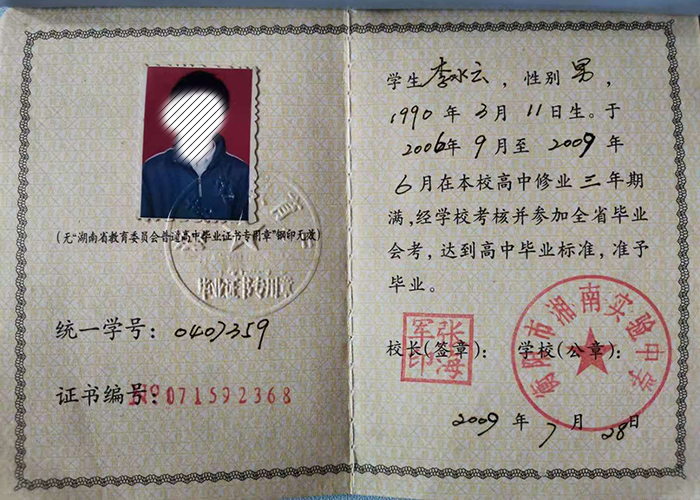 (无“湖南省教育委员会普通高中毕业证书专用章”钢印无效)
毕业证书专用章
统一学号：0407359
证书编号：NO 071592368
学生 李水云 ，性别 男 ，
1990 年 3 月 11 日生。于
2006年 9 月至 2009 年
6 月在本校高中修业 三 年期
满,经学校考核并参加全省毕业
会考，达到高中毕业标准，准予
毕业。
校长(签章)：  学校(公章)：
张海军印
衡阳市湘南实验中学
2009 年 7 月 28 日